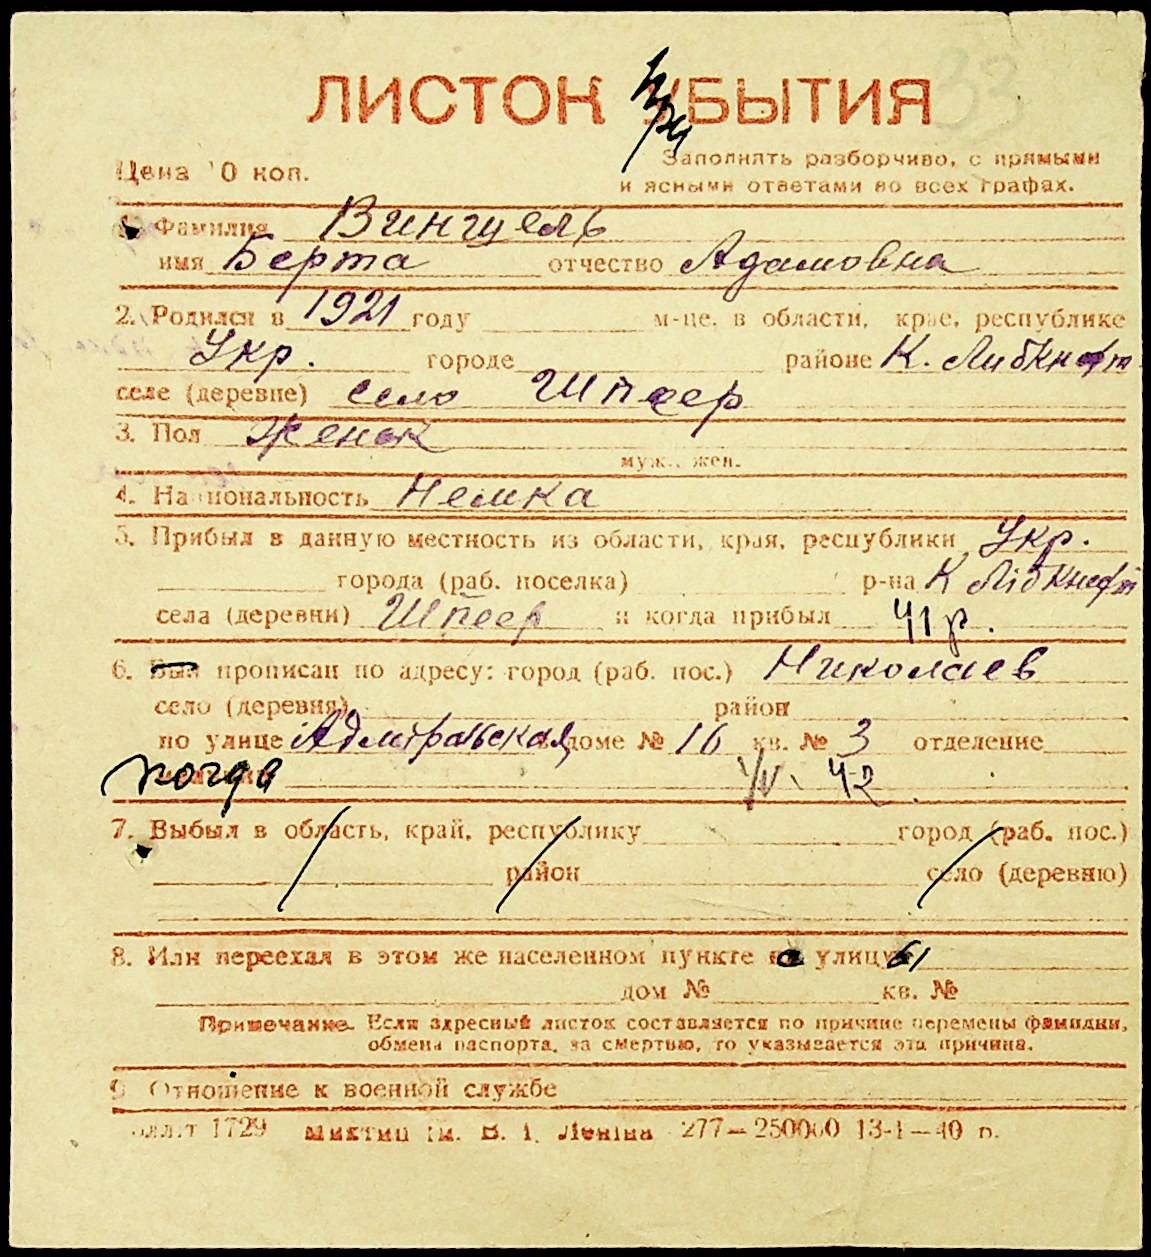 ЛИСТОК УБЫТИЯ
при
33
Цена 10 коп.
Заполнять разборчиво, с прямыми
и ясными ответами во всех графах.
1. Фамилия Вингцель
имя Берта отчество Адамовна
2. Родился в 1921 году м-це, в области, крае, республике
Укр. городе районе К. Либкнехт
селе (деревне) село Шпеер
3. Пол женск
муж., жен.
4. Национальность Немка
5. Прибыл в данную местность из области, края, республики Укр.
города (раб. поселка) р-на К Лібкнехт
села (деревни) Шпеер и когда прибыл 41 р.
6. Был прописан по адресу: город (раб. пос.) Николаев
село (деревня) район
по улице Адміральская доме № 16 кв. № 3 отделение
когда 1/IV. 42
7. Выбыл в область, край, республику город (раб. пос.)
район село (деревню)
8. Или переехал в этом же населенном пункте на улицу 61
дом № кв. №
Примечание. Если адресный листок составляется по причине перемены фамилии,
обмена паспорта, за смертью, то указывается эта причина.
9. Отношение к военной службе
1729 ім. В. І. Леніна 277—250000 13-I—40 р.